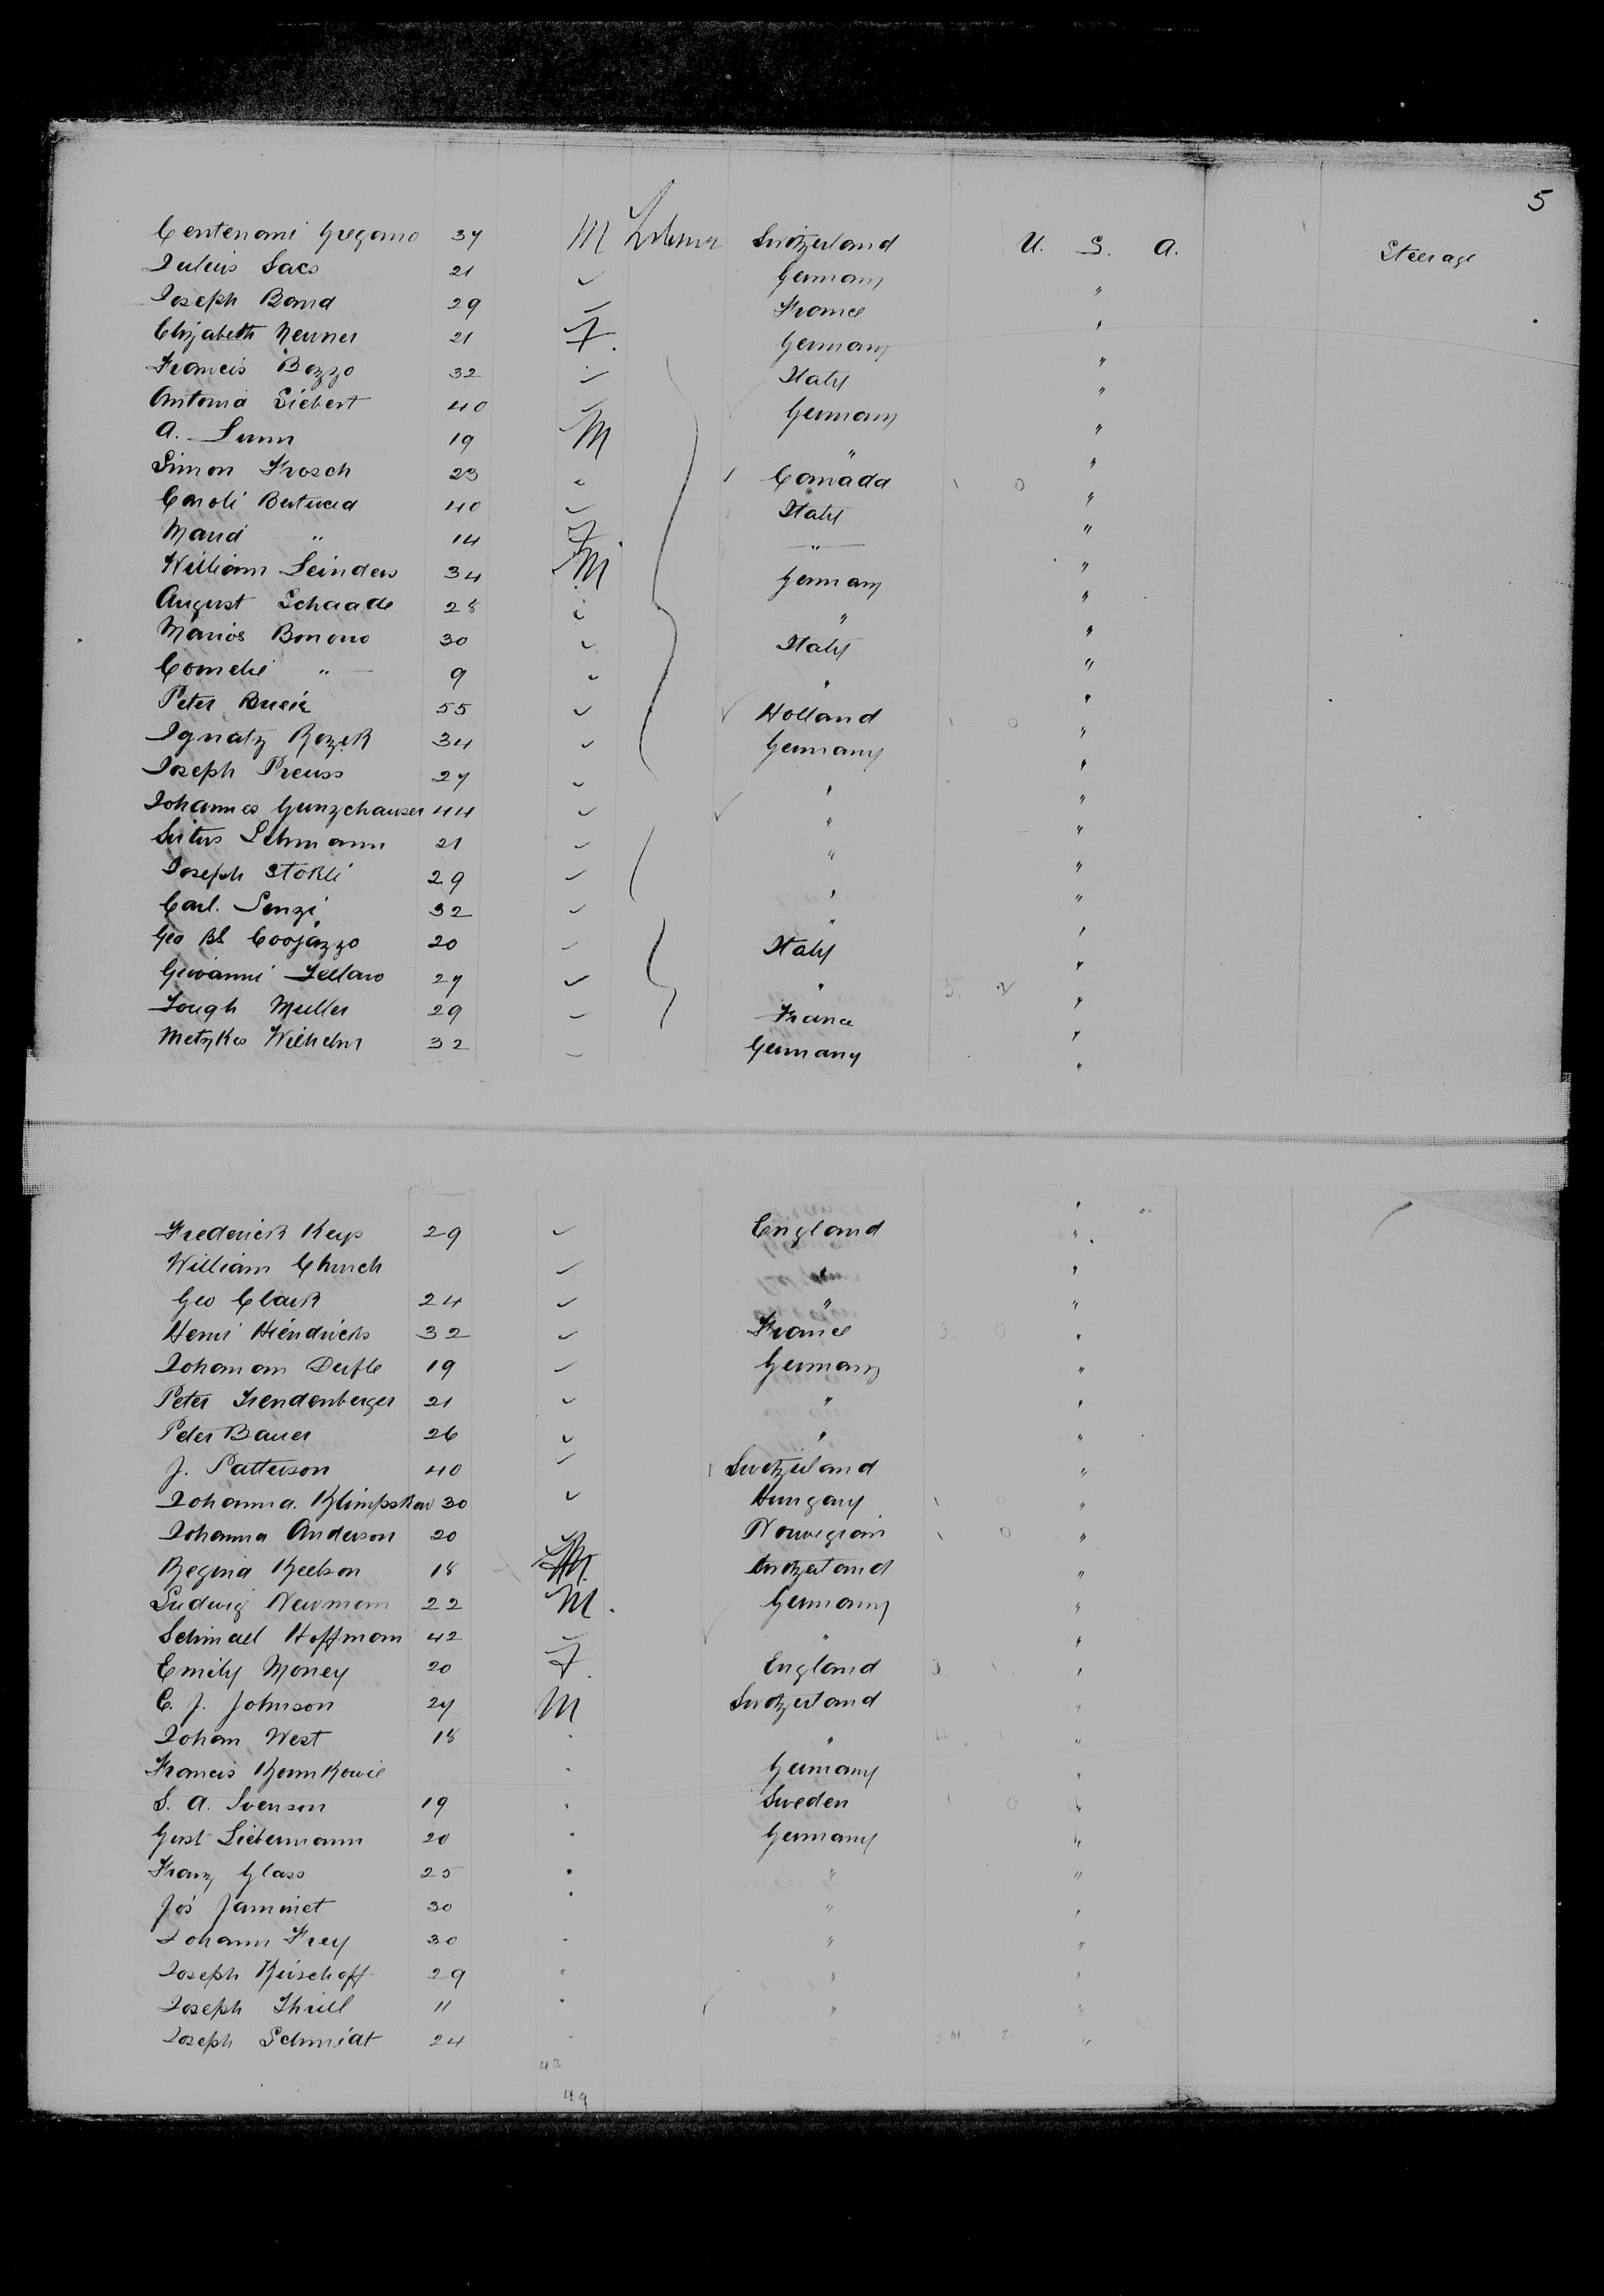 5
Centenari Gregorio 37 M Laborer Switzerland U. S. A. Steerage
Julius Sacs 21 ✓ Germany "
Joseph Band 29 ✓ France "
Elizabeth Neuner 21 F. Germany "
Francis Bozzo 32 ✓ Italy "
Antonia Siebert 40 ✓ Germany "
A. Lunn 19 M " "
Simon Frosch 23 ✓ Canada 1 0 "
Caroli Bertucca 40 ✓ Italy "
Maria " 14 F " "
William Leinders 34 M Germany "
August Schaade 28 ✓ " "
Marios Bonono 30 ✓ Italy "
Cornelie " 9 ✓ " "
Peter 55 ✓ Holland 1 0 "
Ignatz Rozek 34 ✓ Germany "
Joseph Preuss 27 ✓ " "
Johannes Gunzchauser 44 ✓ " "
Lehmann 21 ✓ " "
Joseph Stokli 29 ✓ " "
Carl. Senzi 32 ✓ " "
Geo Bt Coojazzo 20 ✓ Italy "
Giovanni Tellaro 27 ✓ " 5. 2 "
Muller 29 ✓ France "
Metzkes Wilhelm 32 ✓ Germany "
Frederick Keys 29 ✓ England "
William Church ✓ " "
Geo Clark 24 ✓ " "
Henri Hendricks 32 ✓ France 3. 0 "
19 ✓ Germany "
Peter Frendenberger 21 ✓ " "
Peter Bauer 26 ✓ " "
J. Patterson 40 ✓ Switzerland "
Johanna. Klimpskow 30 ✓ Hungary 1 0 "
Johanna Anderson 20 ✓ Norwegian 1 0 "
Regina Keelson 18 Switzerland "
Ludwig Newman 22 M. Germany "
Schmael Hoffman 42 ✓ " "
Emily Money 20 F. England 3 1 "
C. J. Johnson 27 M Switzerland "
Johan West 18 " 4. 1 "
Francis Germany "
S. A. Svenson 19 Sweden 1 0 "
Gust Liebermann 20 Germany "
Franz Glass 25 " "
Jos Jaminet 30 " "
Johann Frey 30 " "
Joseph Keischoff 29 " "
Joseph Thrill 11 " "
Joseph Schmidt 24 " 24 2 "
43
49